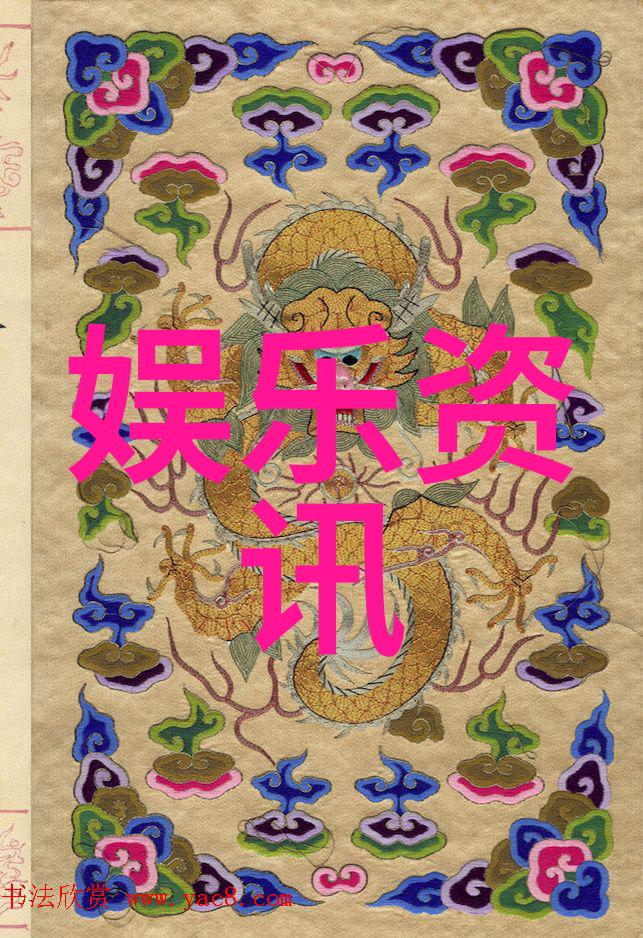 娱乐资
讯
书法欣赏 www.yac8.com